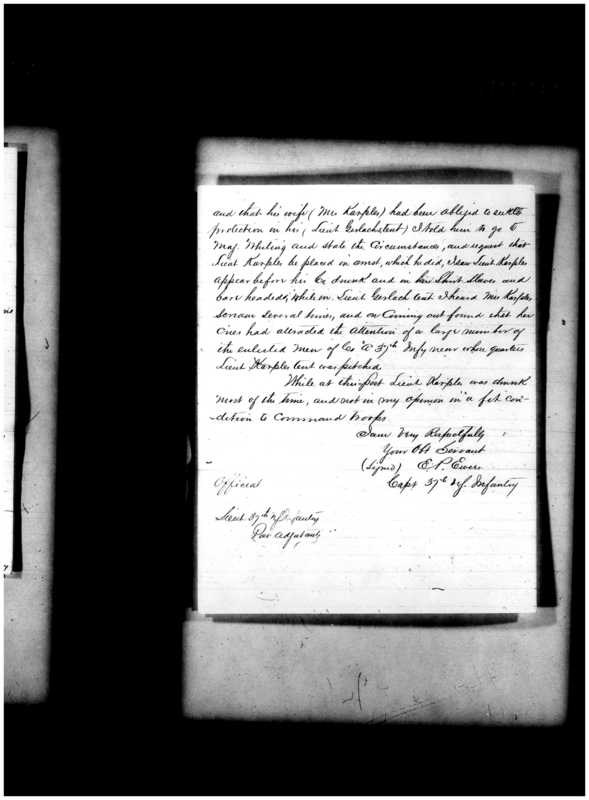 and that his wife (Mrs Karples) had been obliged to seek
protection in his, (Lieut Gerlachs tent) I told him to go to
Maj. Whiting and state the Circumstances, and request that
Lieut Karples be placed in arrest, which he did, I saw Lieut Karples
appear before his Co drunk and in his Shirt Sleaves and
bare headed, while in Lieut Gerlach tent I heard Mrs Karples
scream several times, and on Coming out found that her
Cries had attracted the Attention of a large number of
the enlisted Men of Co "A" 37th Infy near whose quarters
Lieut Karples tent was pitched
While at this Post Lieut Karples was drunk
most of the time, and not in my opinion in "a fit con-
dition to Command troops
I am Very Respectfully
Your Obt Servant
(Signed) E. P. Ewers
Capt 37th Inf. Infantry
Official
Lieut 37th Infantry
Post Adjutant